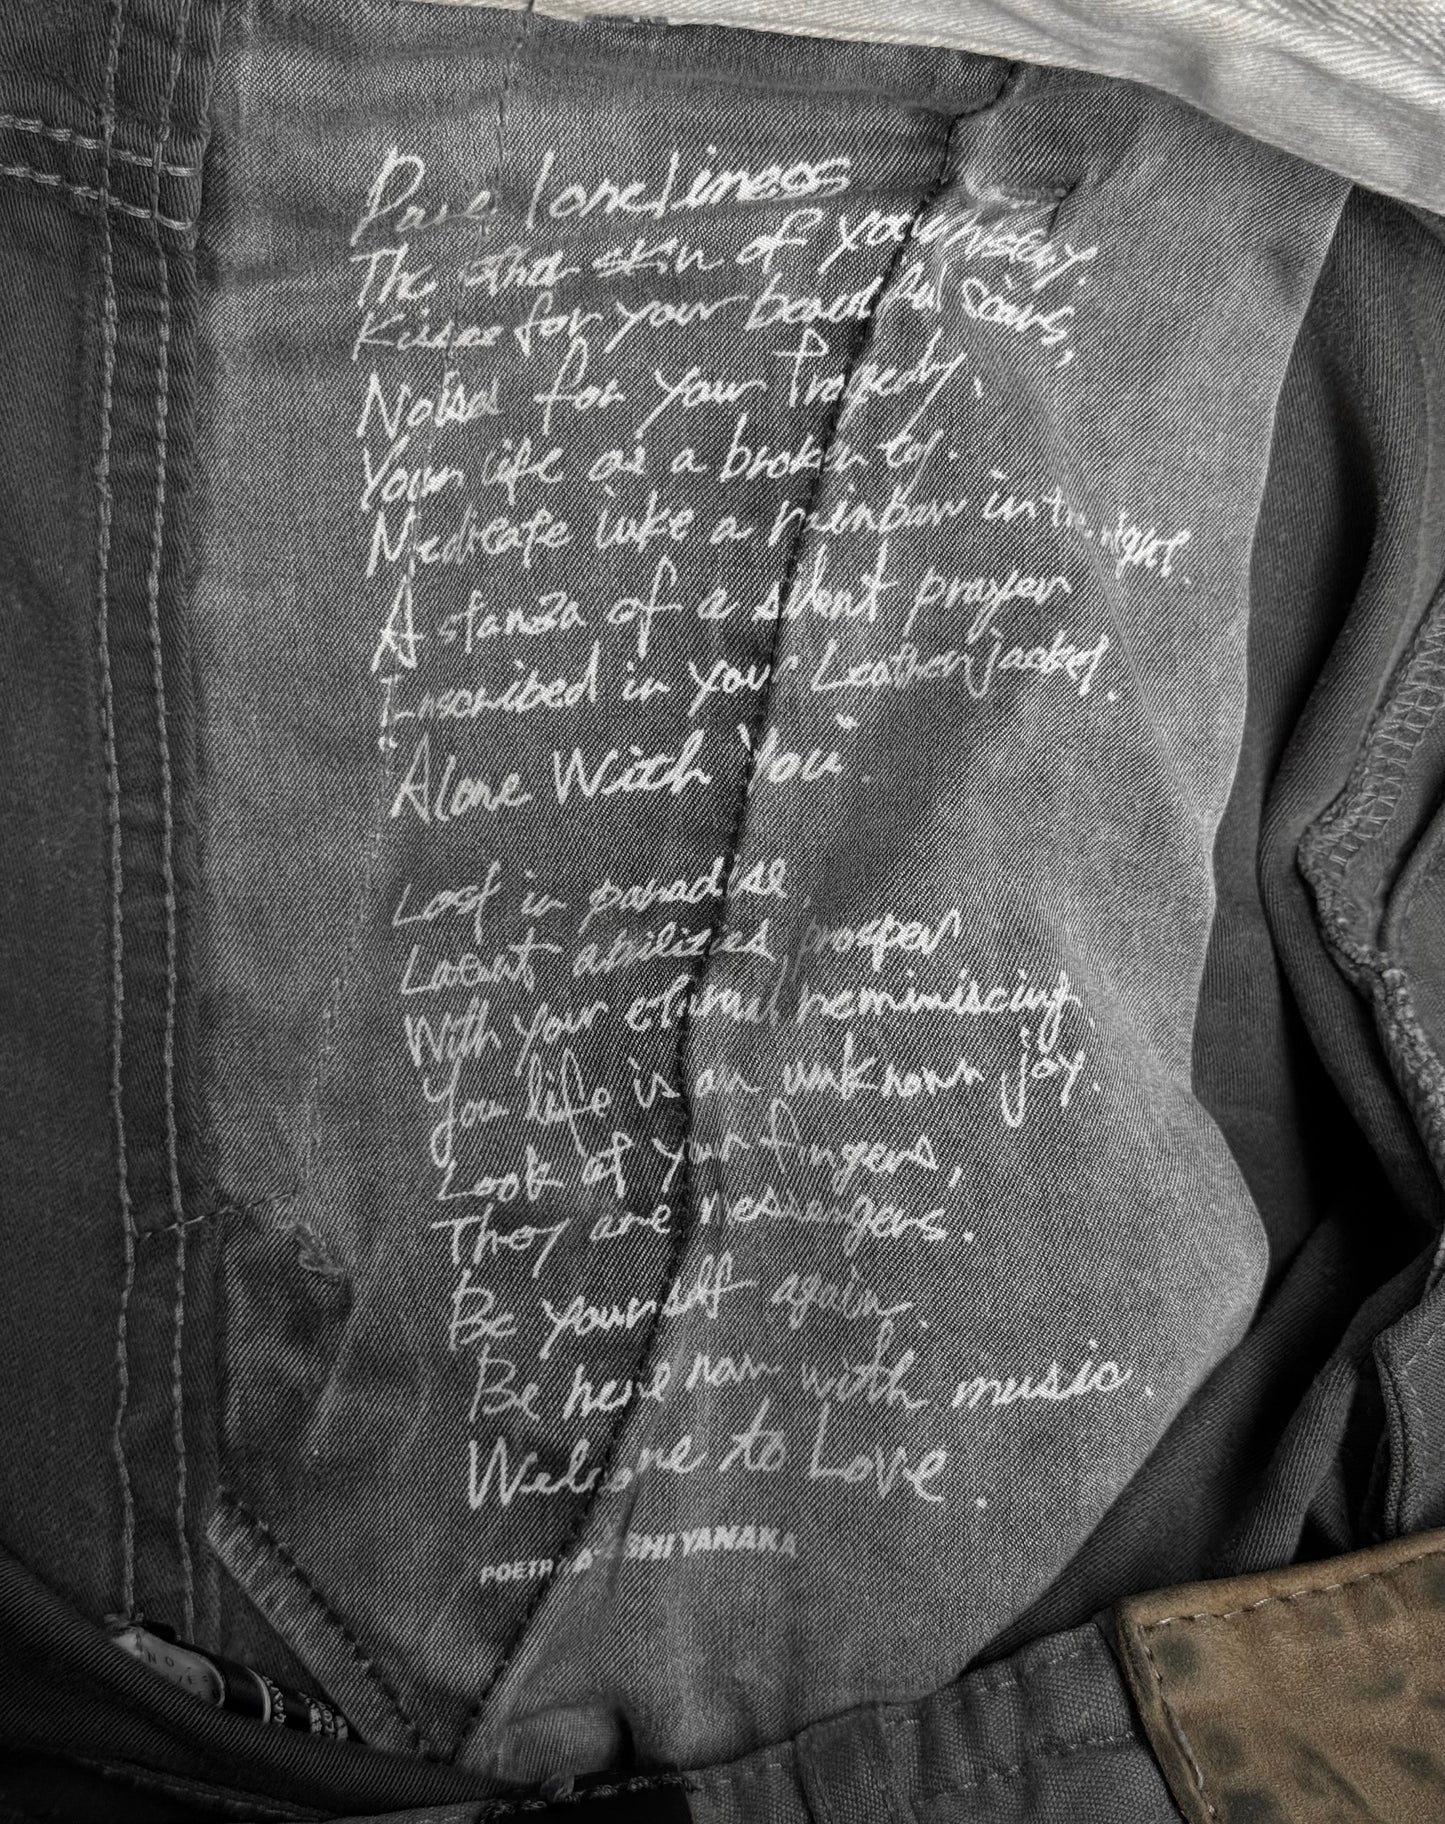 Pure loneliness
The other skin of your whisky.
Kisses for your beautiful scars,
Noise for your Tragedy,
Your life as a broken toy.
Meditate like a rainbow in the night.
A stanza of a silent prayer
Inscribed in your Leather Jacket.
"Alone With You".
Lost in paradise,
Latent abilities prosper
With your eternal reminiscing,
Your life is an unknown joy.
Look at your fingers,
They are messengers.
Be yourself again.
Be here now with music.
Welcome to Love.
SHI YANAKA